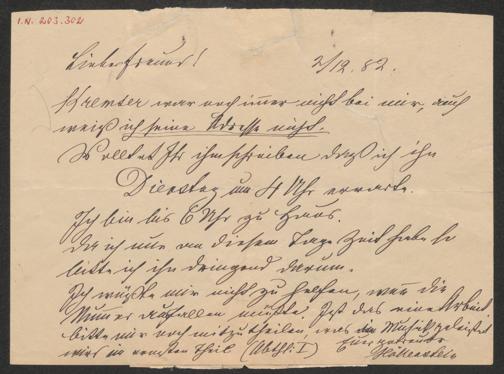 I.N. 203.302
Lieber Freund! 2/12. 82.
Kremser war noch immer nicht bei mir, auch
weiß ich seine Adresse nicht.
Wolltet Ihr ihm schreiben daß ich ihn
Dienstag um 4 Uhr erwarte.
Ich bin bis 6 Uhr zu Haus.
Da ich nur an diesem Tage Zeit habe so
bitte ich ihn dringend darum.
Ich wüßte mir nicht zu helfen, wenn die
Nummer ausfallen müßte. Ist das eine Arbeit
bitte mir noch mitzutheilen, was an Musik geleistet
wird im ersten Theil (Abthl. I) Euer getreuer